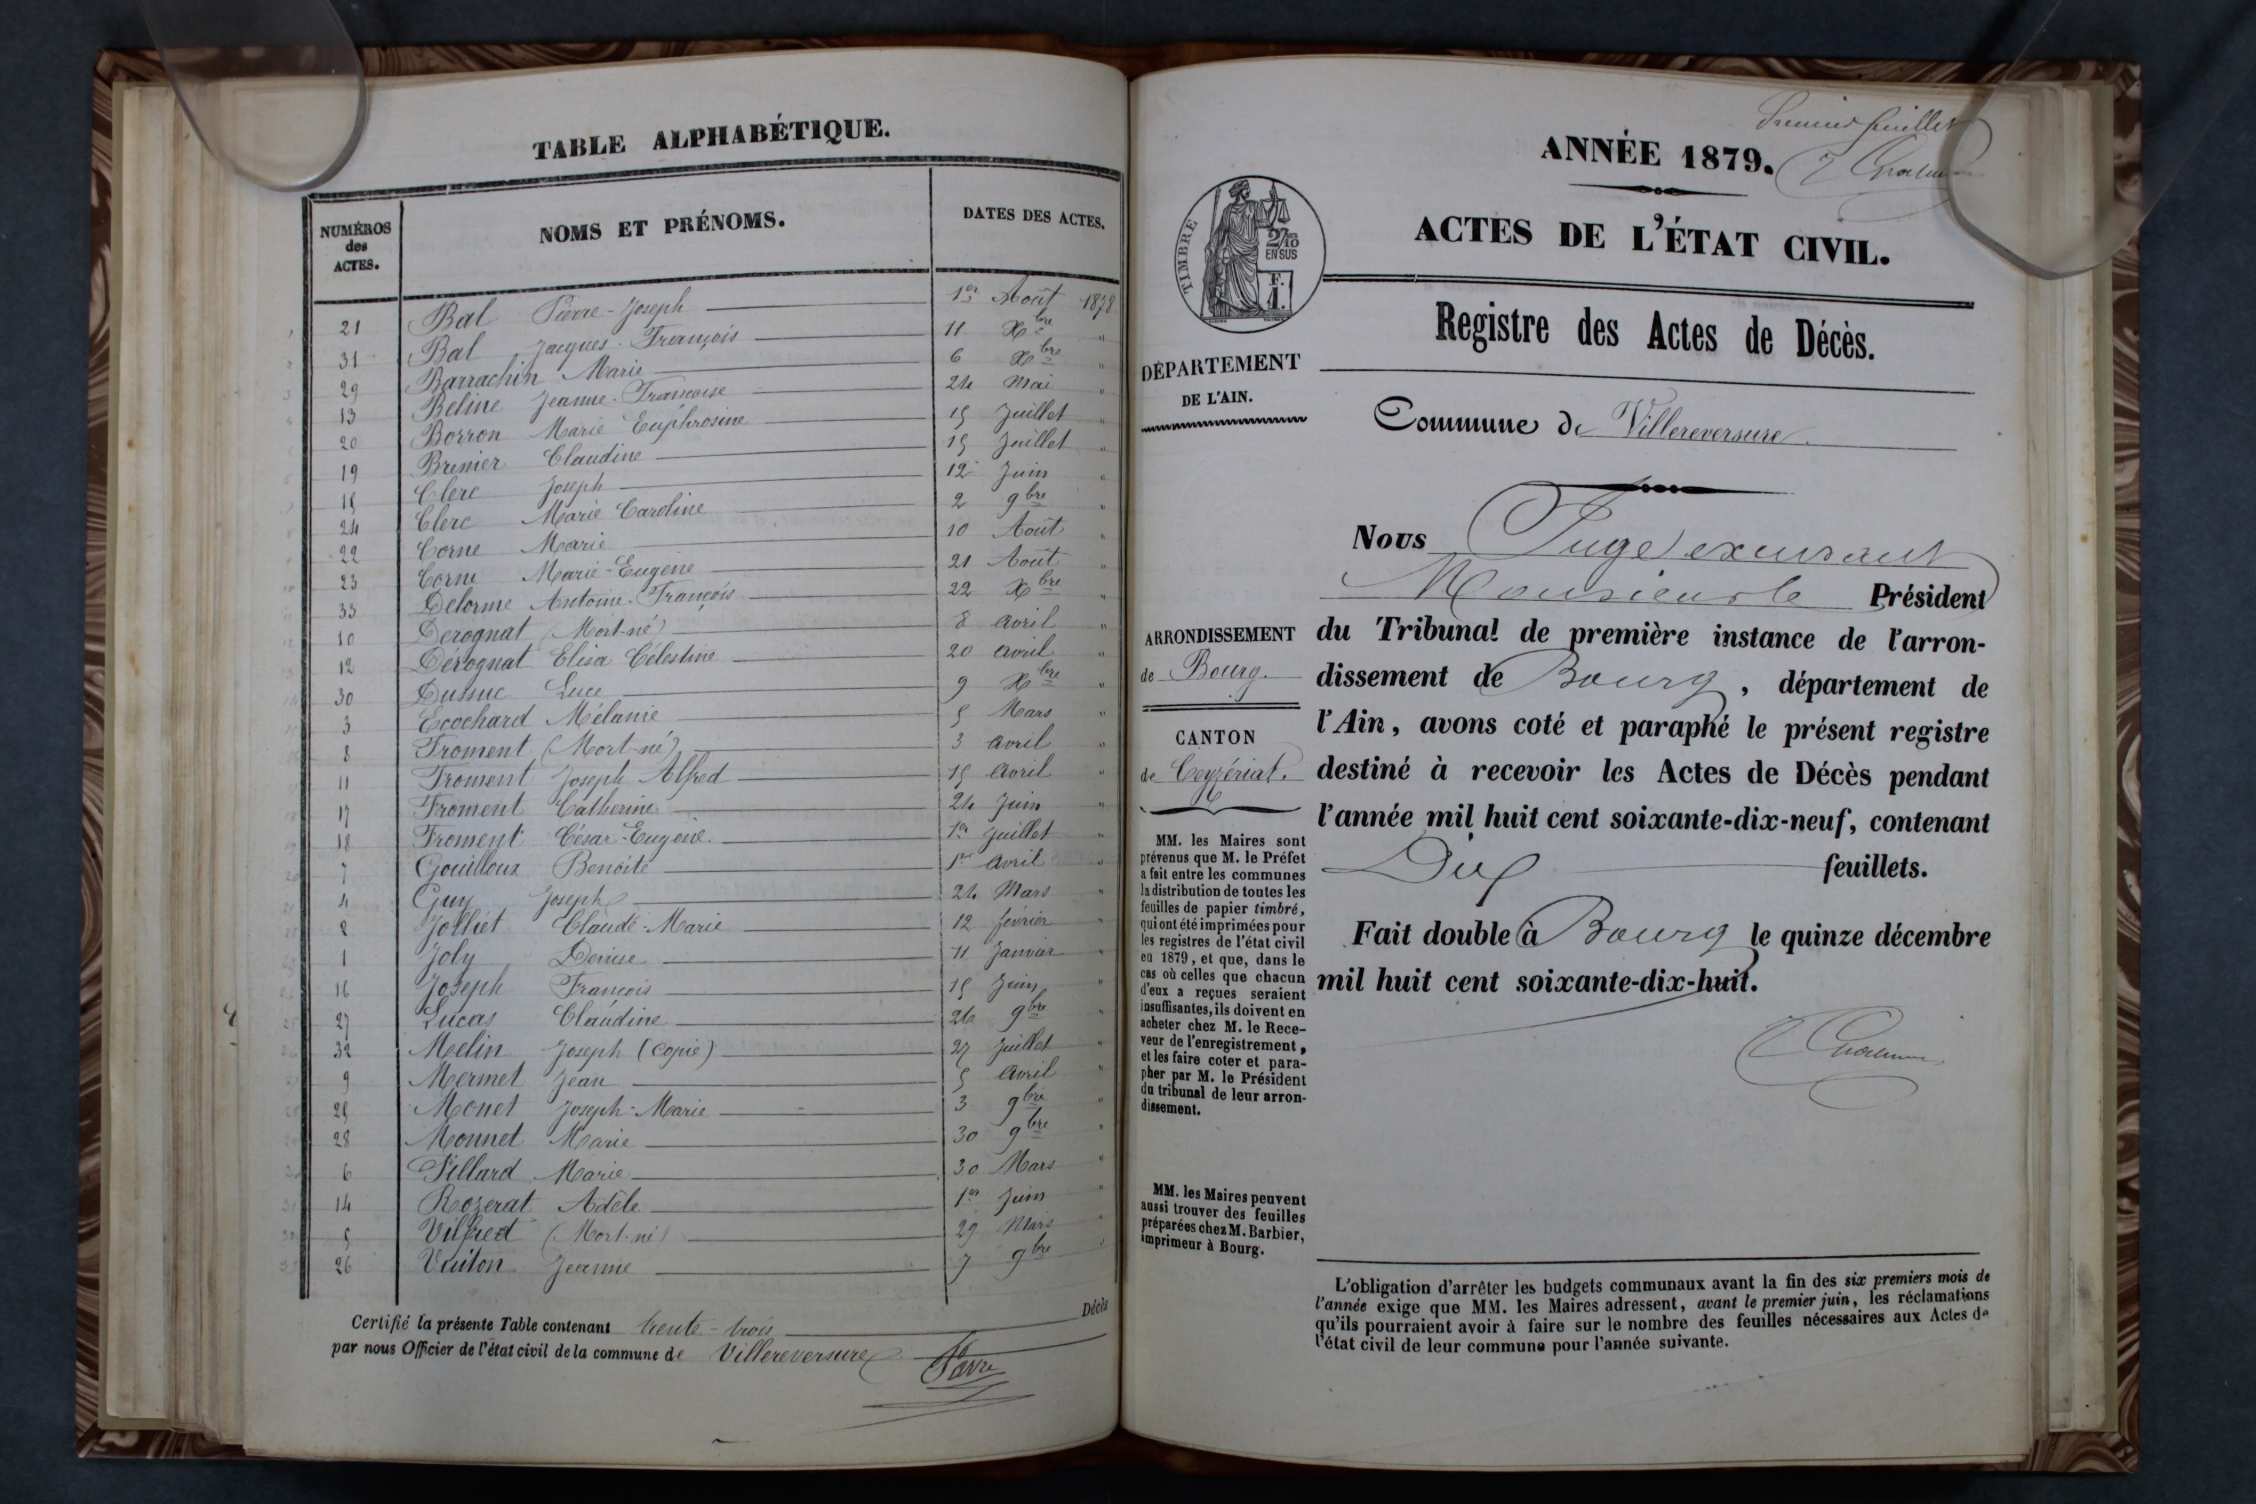 TABLE ALPHABÉTIQUE.
NUMÉROS des ACTES. NOMS ET PRÉNOMS. DATES DES ACTES.
21 Bal Pierre-Joseph 1er Août 1878
31 Bal Jacques-François 11 Xbre "
29 Barrachin Marie 6 Xbre "
13 Beline Jeanne-Françoise 24 Mai "
20 Borron Marie Euphrosine 15 Juillet "
19 Brenier Claudine 15 Juillet "
15 Clerc Joseph 12 Juin "
24 Clerc Marie Caroline 2 9bre "
22 Corne Marie 10 Août "
23 Corne Marie-Eugène 21 Août "
33 Delorme Antoine-François 22 Xbre "
10 Derognat (Mort-né) 8 avril "
12 Dérognat Elisa Célestine 20 avril "
30 Dussuc Luce 9 Xbre "
3 Ecochard Mélanie 5 Mars "
8 Froment (Mort-né) 3 avril "
11 Froment Joseph Alfred 15 avril "
17 Froment Catherine 24 Juin "
18 Froment César-Eugène 1er Juillet "
7 Gouilloux Benoite 1er avril "
4 Guy Joseph 24 Mars "
2 Jolliet Claude-Marie 12 février "
1 Joly Denise 11 Janvier "
16 Joseph François 15 Juin "
27 Lucas Claudine 26 9bre "
32 Melin Joseph (copie) 27 Juillet "
9 Mermet Jean 5 avril "
25 Monet Joseph-Marie 3 9bre "
28 Monnet Marie 30 9bre "
6 Pillard Marie 30 Mars "
14 Rozerat Adèle 1er Juin "
5 Vilfred (Mort-né) 29 Mars "
26 Vuiton Jeannie 7 9bre "
Certifié la présente Table contenant trente-trois Décès
par nous Officier de l'état civil de la commune de Villereversure
Favre
Premier feuillet
ANNÉE 1879.
ACTES DE L'ÉTAT CIVIL.
TIMBRE
2/10 EN SUS
F. 1.
Registre des Actes de Décès.
DÉPARTEMENT
DE L'AIN.
Commune de Villereversure
Nous Juge excusant
Monsieur le Président
du Tribunal de première instance de l'arron-
dissement de Bourg, département de
l'Ain, avons coté et paraphé le présent registre
destiné à recevoir les Actes de Décès pendant
l'année mil huit cent soixante-dix-neuf, contenant
Dix feuillets.
Fait double à Bourg le quinze décembre
mil huit cent soixante-dix-huit.
ARRONDISSEMENT
de Bourg.
CANTON
de Ceyzériat.
MM. les Maires sont
prévenus que M. le Préfet
a fait entre les communes
la distribution de toutes les
feuilles de papier timbré,
qui ont été imprimées pour
les registres de l'état civil
en 1879, et que, dans le
cas où celles que chacun
d'eux a reçues seraient
insuffisantes, ils doivent en
acheter chez M. le Rece-
veur de l'enregistrement,
et les faire coter et para-
pher par M. le Président
du tribunal de leur arron-
dissement.
MM. les Maires peuvent
aussi trouver des feuilles
préparées chez M. Barbier,
imprimeur à Bourg.
L'obligation d'arrêter les budgets communaux avant la fin des six premiers mois de
l'année exige que MM. les Maires adressent, avant le premier juin, les réclamations
qu'ils pourraient avoir à faire sur le nombre des feuilles nécessaires aux Actes de
l'état civil de leur commune pour l'année suivante.